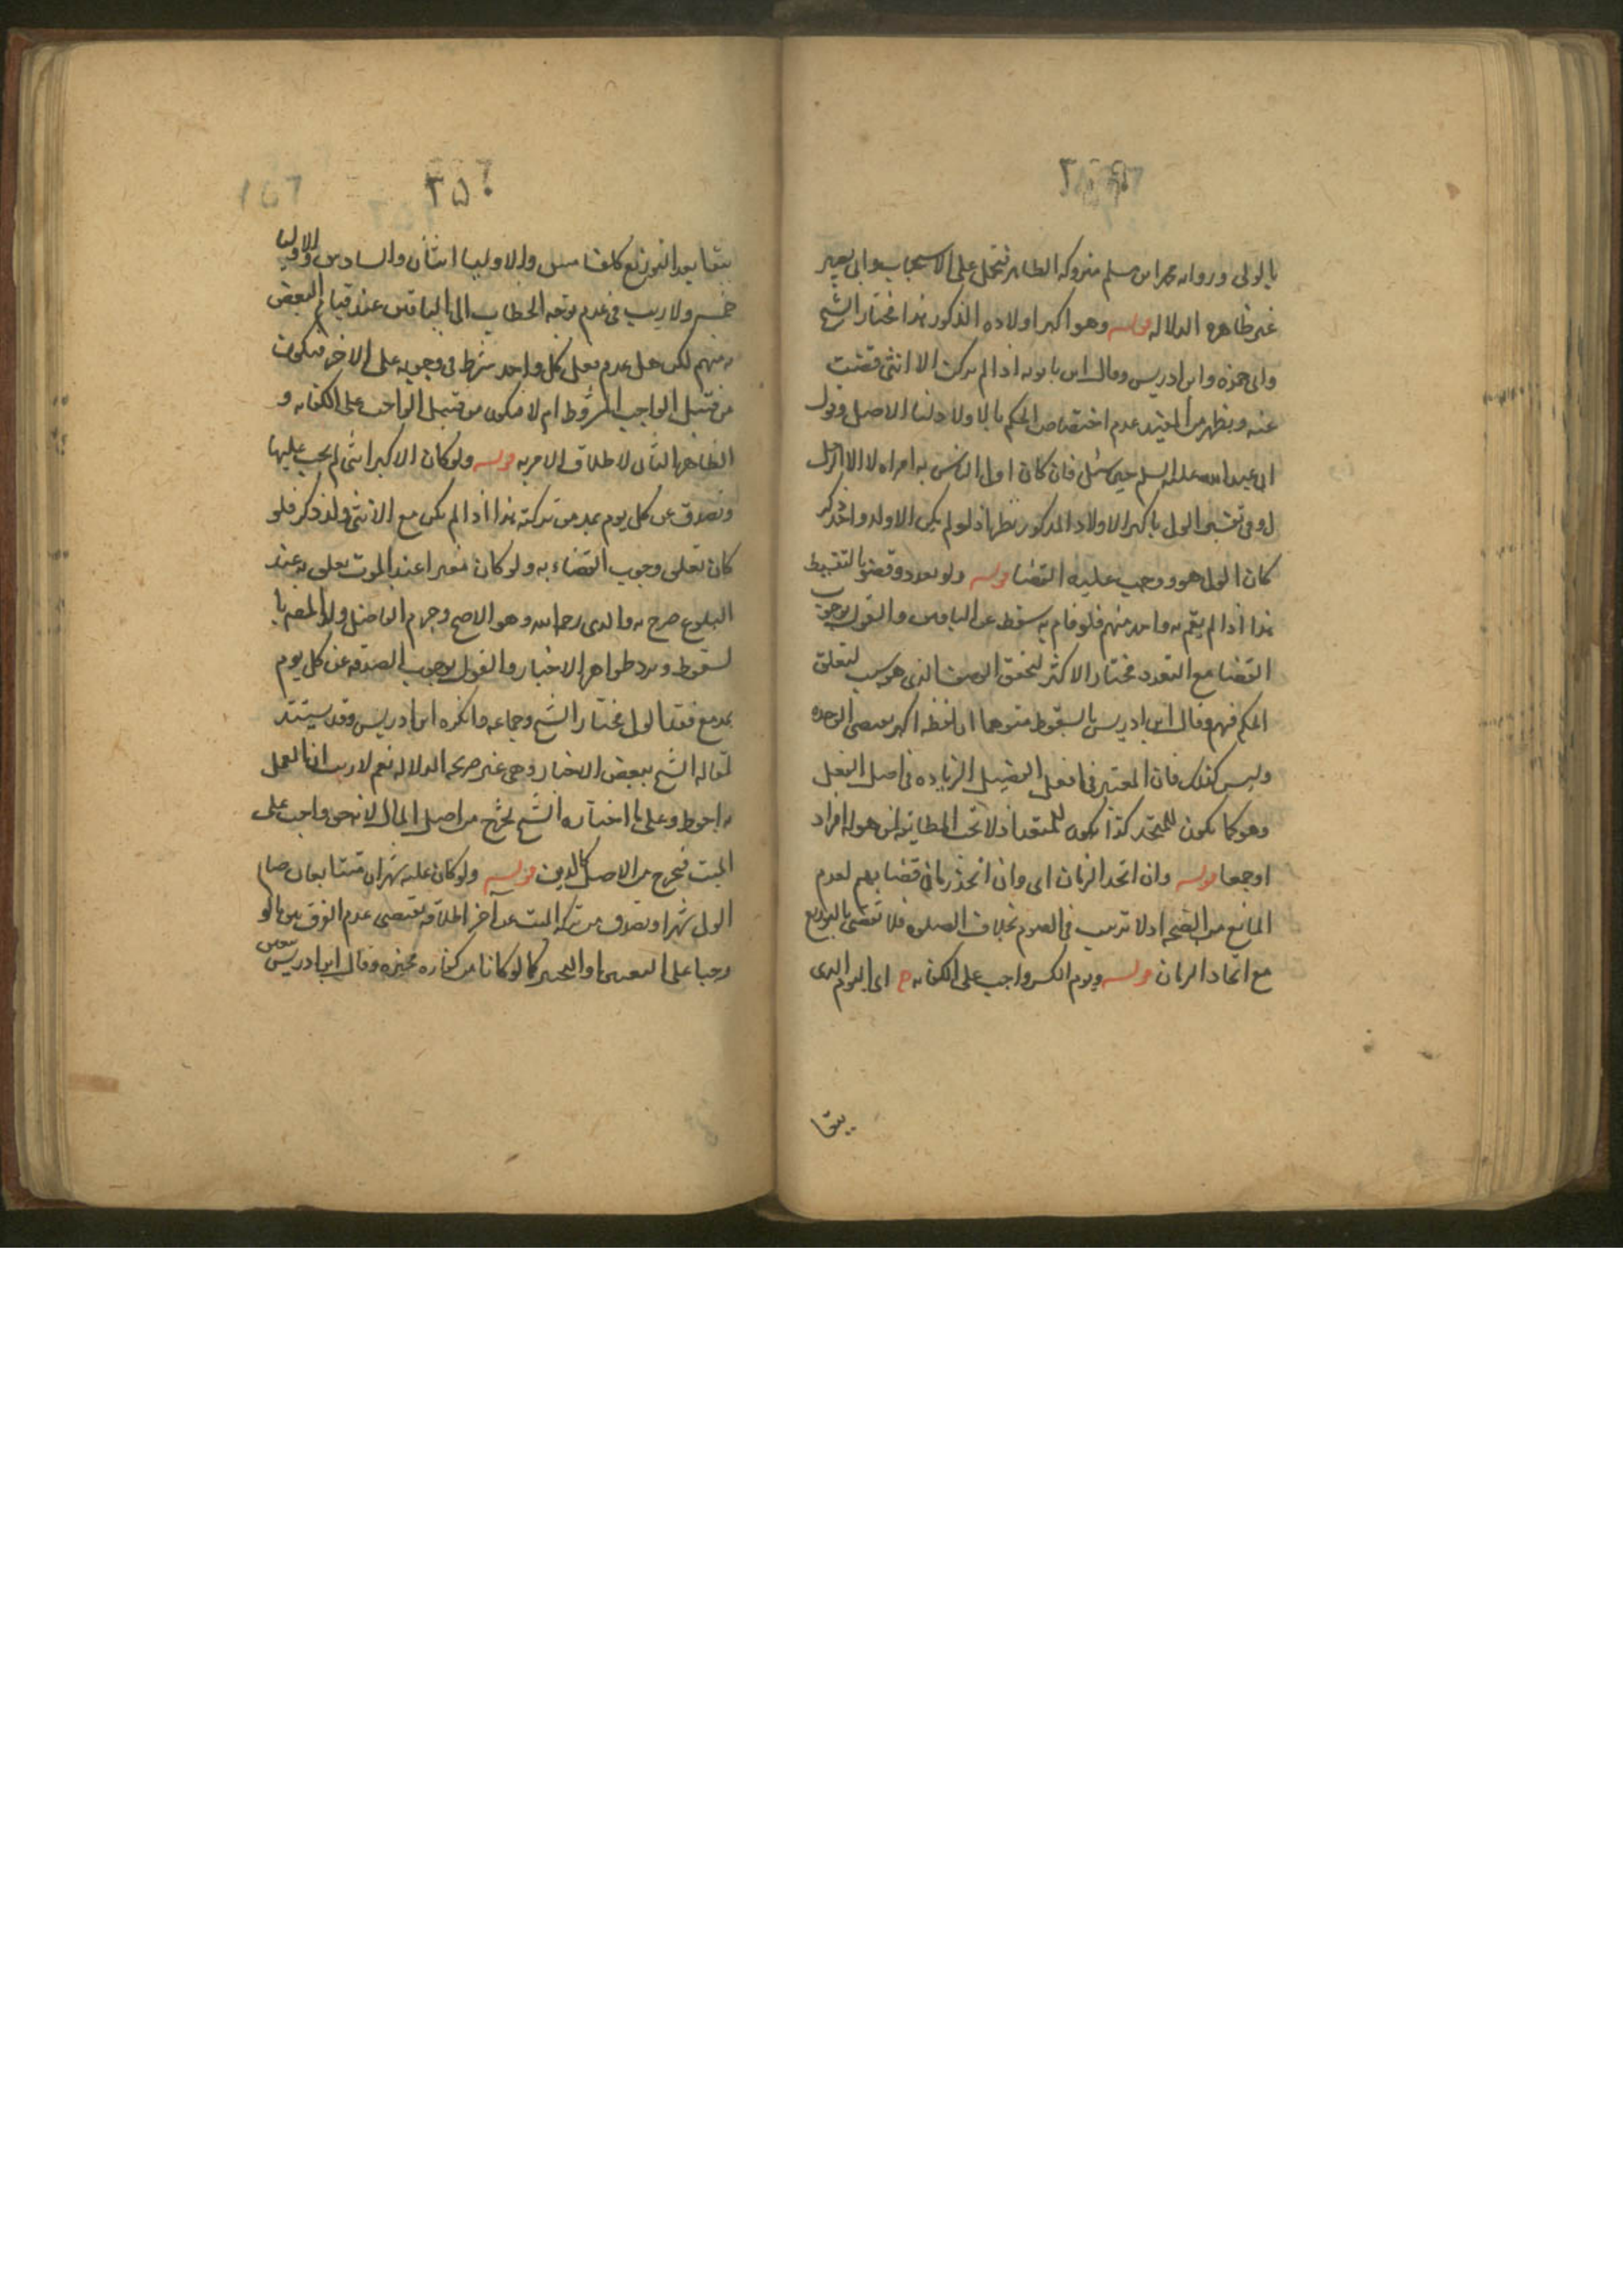 بالولى وروايه محمد ابن مسلم متروكه الظاهر فتحمل على الاستحباب وابى بصير
غير ظاهره الدلاله قوله وهو اكبر اولاده الذكور هذا مختار الشيخ
وابى حمزه وابن ادريس وقال ابن بابويه اذا لم يكن الا انثى قضت
عنه ويظهر من المفيد عدم اختصاص الحكم بالاولاد لنا الاصل وقول
ابى عبد الله عليه السلم حين سئل فان كان اول الناس به امراه لا الا الرجل
وفى تفسير الولى باكبر الاولاد المذكور نظر اذ لو لم يكن الا ولد واحد ذكر
كان الولى هو ووجب عليه القضا قوله ولو تعدد وقضوا بالتقسيط
هذا اذا لم يقم به واحد منهم فلو قام به سقط عن الباقين والقول بوجوب
القضا مع التعدد مختار الاكثر لتحقق الوصف الذى هو سبب لتعلق
الحكم فيهم وقال ابن ادريس بالسقوط متوهما ان لفظه اكبر يقتضى الوحده
وليس كذلك فان المعتبر فى افعل التفضيل الزياده فى اصل الفعل
وهو كما يكون للمتحد كذا يكون للمتعدد
قوله وان اتحد الزمان اى وان اتحد زمان قضايهم لعدم
المانع من الصحه اذ لا ترتيب فى الصوم بخلاف الصلوه فلا تقضى بالتوزيع
مع اتحاد الزمان قوله ويوم الكسر واجب على الكفايه اى اليوم الذى
يبقا
٢٥٦
يبقا بعد التوزيع كلف
خمسه ولا ريب فى عدم توجه الخطاب الى الباقين عند قيام البعض
به منهم لكن هل عدم فعل كل واحد شرط فى وجوبه على الاخر فيكون
من قبيل الواجب المشروط ام لا فيكون من قبيل الواجب على الكفايه و
الظاهر الثانى لاطلاق الامر به قوله ولو كان الاكبر انثى لم يجب عليها
وتصدق عن كل يوم بمد من تركته هذا اذا لم يكن مع الانثى ولد ذكر فلو
كان تعلق وجوب القضاء به ولو كان صغيرا عند الموت تعلق به عند
البلوغ صرح به والدى رحمه الله وهو الاصح وجزم الفاضل ولد المصنف با
لسقوط ويرد ظواهر الاخبار والقول بوجوب الصدقه عن كل يوم
بمد مع فقد الولى مختار الشيخ وجماعه وانكره ابن ادريس وقد يستند
لمقاله الشيخ ببعض الاخبار وهى غير صريحه الدلاله نعم لا ريب ان العمل
به احوط وعلى ما اختاره الشيخ تخرج من اصل المال لانه حق واجب على
الميت فيخرج من الاصل كالدين قوله ولو كان عليه شهران متتابعان صام
الولى شهرا وتصدق من تركه الميت عن آخر اطلاقه يقتضى عدم الفرق بين ما لو
وجبا على التعيين او التخيير كما لو كانا من كفاره مخيره وقال ابن ادريس